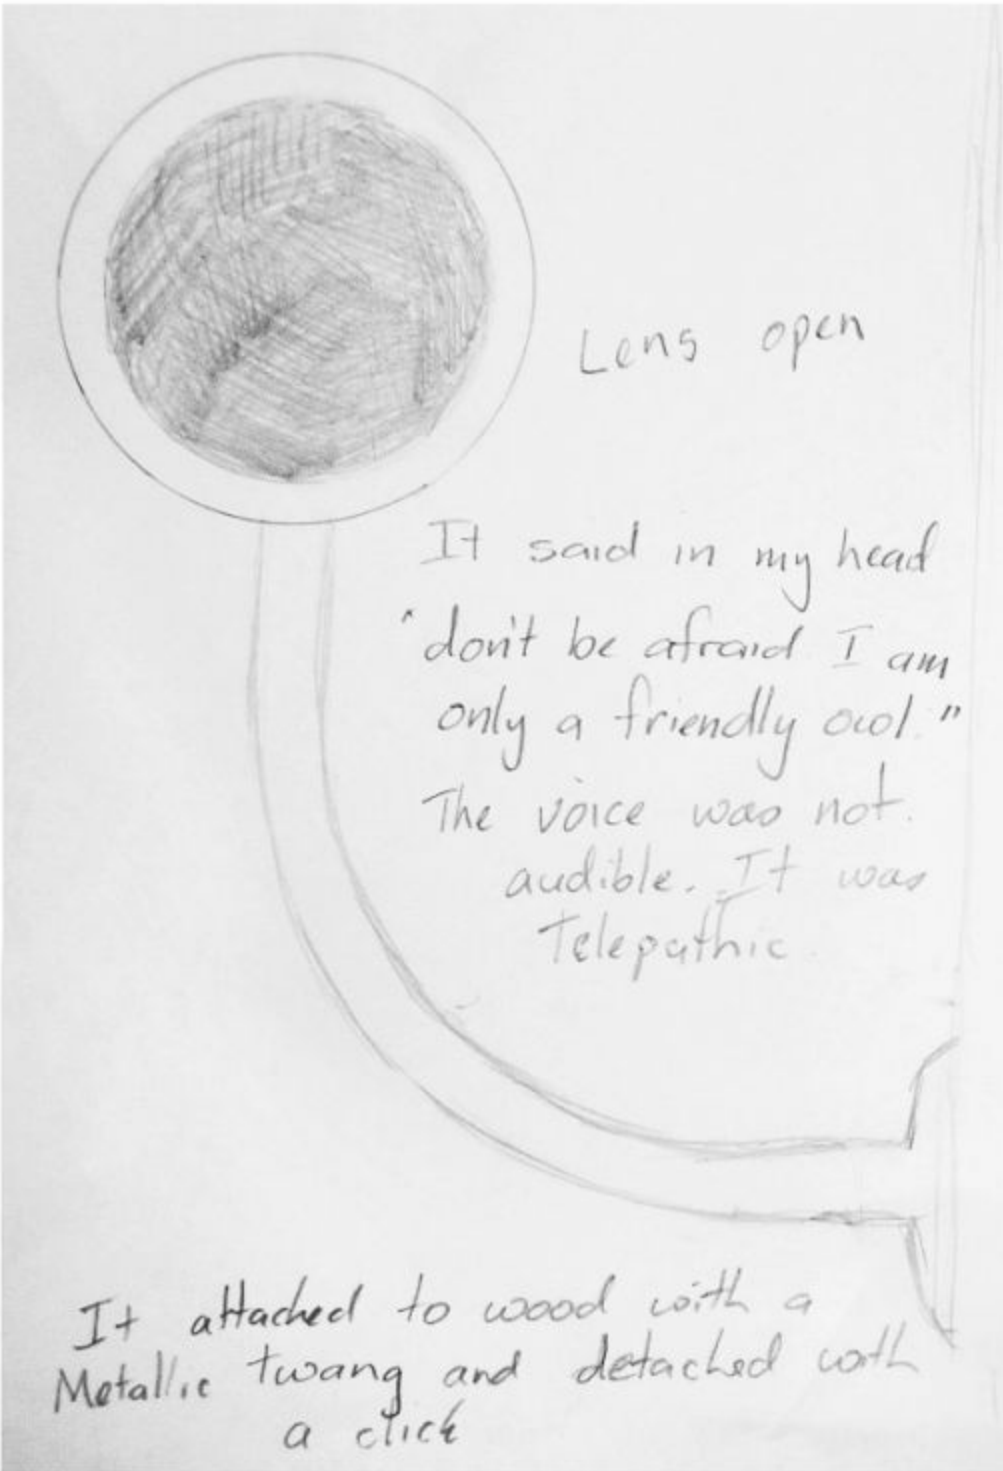 Lens open
It said in my head
"don't be afraid I am
only a friendly owl."
The voice was not.
audible. It was
Telepathic.
It attached to wood with a
Metallic twang and detached with
a click